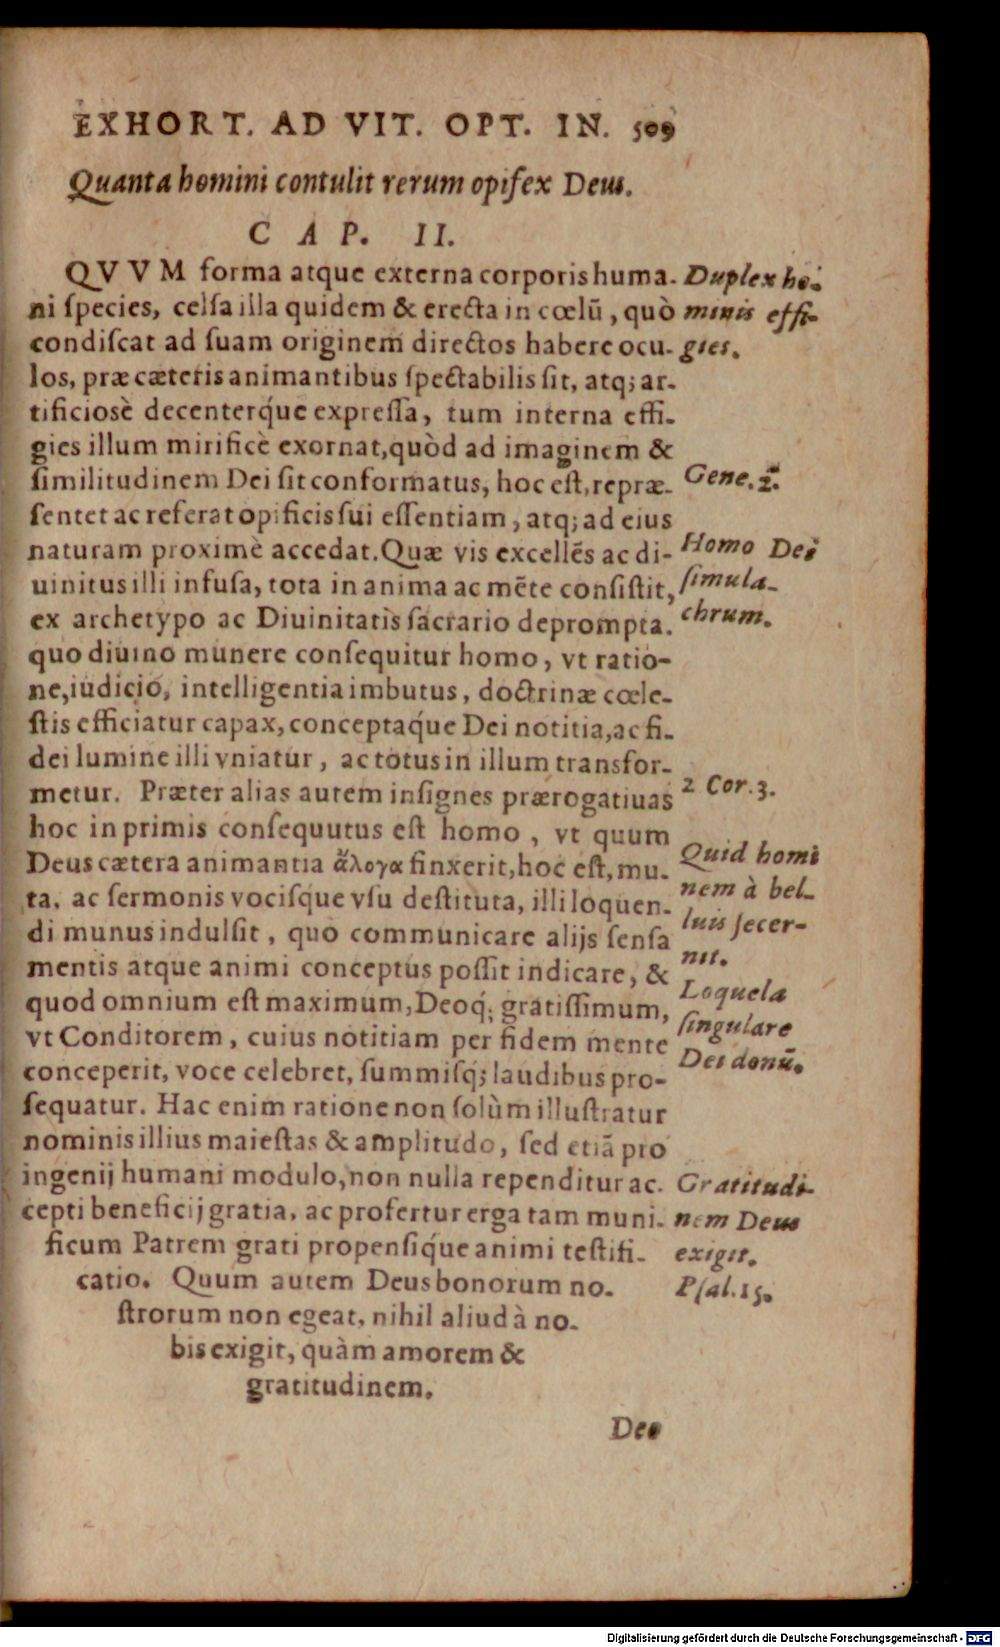 EXHORT. AD VIT. OPT. IN. 509
Quanta homini contulit rerum opifex Deus.
CAP. II.
QVVM forma atque externa corporis huma-
ni species, celsa illa quidem & erecta in cœlū, quò
condiscat ad suam originem directos habere ocu-
los, præ cæteris animantibus spectabilis sit, atq; ar-
tificiosè decenterq́ue expressa, tum interna effi-
gies illum mirificè exornat, quòd ad imaginem &
similitudinem Dei sit conformatus, hoc est, repræ-
sentet ac referat opificis sui essentiam, atq; ad eius
naturam proximè accedat. Quæ vis excellēs ac di-
uinitus illi infusa, tota in anima ac mēte consistit,
ex archetypo ac Diuinitatis sacrario deprompta.
quo diuino munere consequitur homo, vt ratio-
ne, iudicio, intelligentia imbutus, doctrinæ cœle-
stis efficiatur capax, conceptaq́ue Dei notitia, ac fi-
dei lumine illi vniatur, ac totus in illum transfor-
metur. Præter alias autem insignes prærogatiuas
hoc in primis consequutus est homo, vt quum
Deus cætera animantia ἄλογα finxerit, hoc est, mu-
ta, ac sermonis vocisque vsu destituta, illi loquen-
di munus indulsit, quo communicare alijs sensa
mentis atque animi conceptus possit indicare, &
quod omnium est maximum, Deoq́; gratissimum,
vt Conditorem, cuius notitiam per fidem mente
conceperit, voce celebret, summisq́; laudibus pro-
sequatur. Hac enim ratione non solùm illustratur
nominis illius maiestas & amplitudo, sed etiā pro
ingenij humani modulo, non nulla rependitur ac-
cepti beneficij gratia, ac profertur erga tam muni-
ficum Patrem grati propensiq́ue animi testifi-
catio. Quum autem Deus bonorum no-
strorum non egeat, nihil aliud à no-
bis exigit, quàm amorem &
gratitudinem.
Deo
Duplex ho-
minis effi-
gies.
Gene. 2.
Homo Dei
simula-
chrum.
2 Cor. 3.
Quid homi
nem à bel-
luis secer-
nit.
Loquela
singulare
Dei donū.
Gratitudi-
nem Deus
exigit.
Psal. 15.
Digitalisierung gefördert durch die Deutsche Forschungsgemeinschaft - DFG